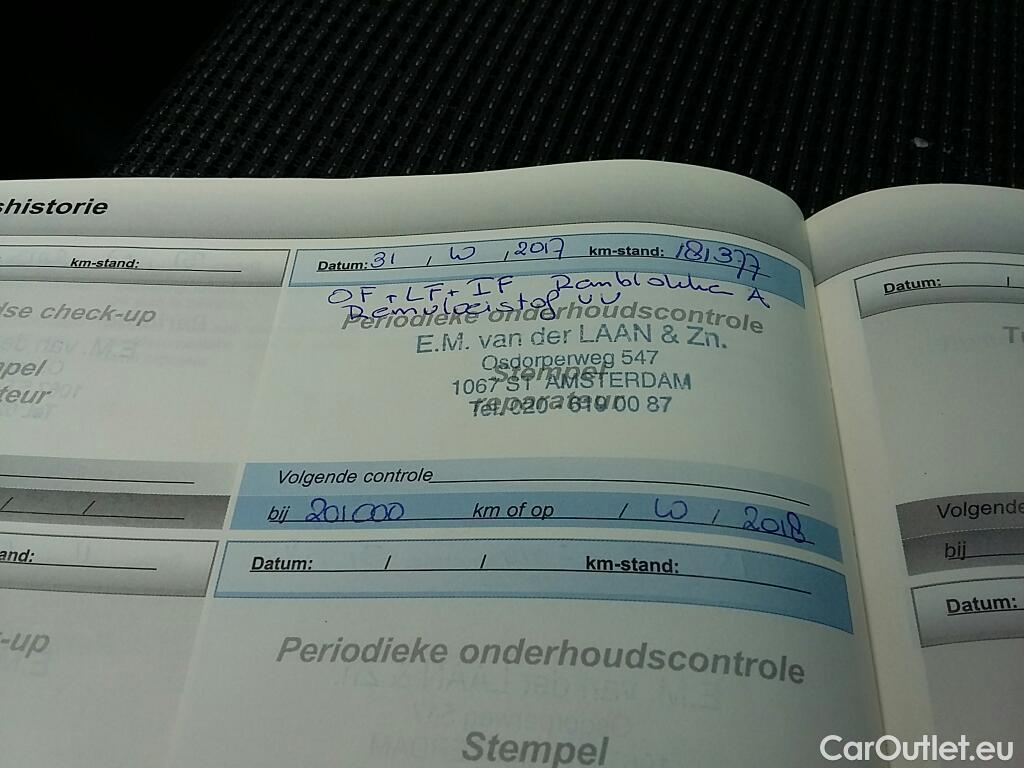 shistorie
km-stand:
Datum: 31 / 10 / 2017 km-stand: 181377
OF + LF + IF Remblokken A.
Remvloeistof VV
lse check-up
Periodieke onderhoudscontrole
E.M. van der LAAN & Zn.
Osdorperweg 547
Stempel
1067 ST AMSTERDAM
reparateur
Tel. 020 - 619 00 87
npel
teur
Volgende controle
bij 201000 km of op / 10 / 2018
Datum: / / km-stand:
and:
-up
Periodieke onderhoudscontrole
Stempel
Datum: /
T
Volgende
bij
Datum:
CarOutlet.eu